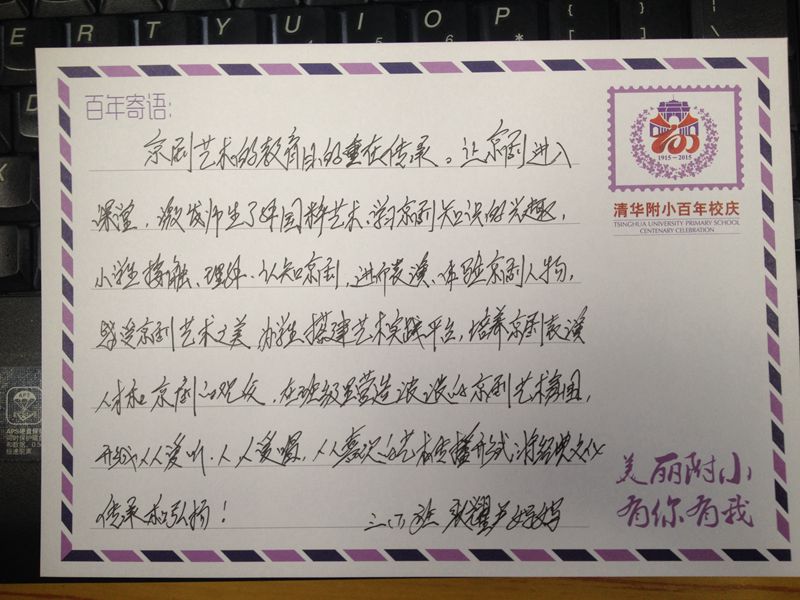 E R T Y U I O P
百年寄语:
京剧艺术的教育目的重在传承。让京剧进入
课堂,激发师生了解国粹艺术、学习京剧知识的兴趣,
小学生接触、理解、认知京剧,进行表演、体验京剧人物,
感受京剧艺术之美 为学生搭建艺术实践平台,培养京剧表演
人才和京剧的观众,在班级里营造浓浓的京剧艺术氛围,
形成人人爱听、人人爱唱、人人喜欢的艺术传播形式,将经典文化
传承和弘扬!
三(下)班 妈妈
1915-2015
清华附小百年校庆
TSINGHUA UNIVERSITY PRIMARY SCHOOL
CENTENARY CELEBRATION
美丽附小
有你有我